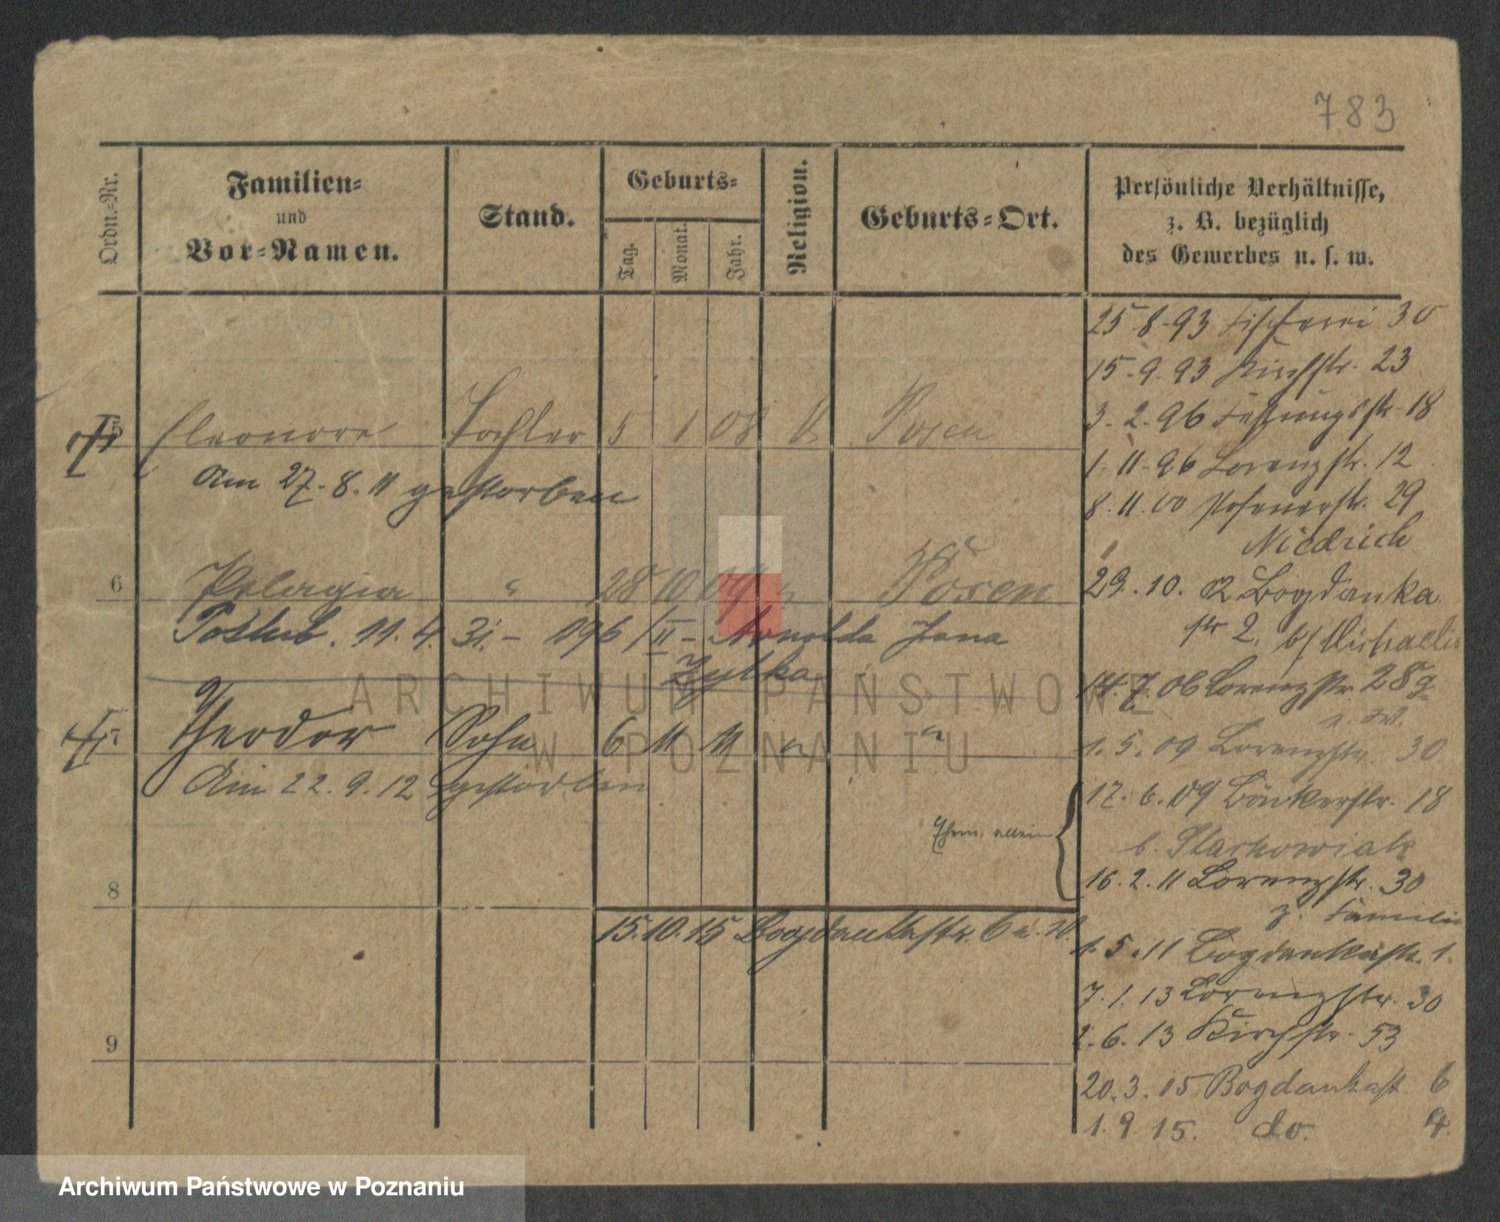 783
Ordn.-Nr.
Familien-
und
Vor-Namen.
Stand.
Geburts-
Tag.
Monat.
Jahr.
Religion.
Geburts-Ort.
Persönliche Verhältnisse,
z. B. bezüglich
des Gewerbes u. s. w.
25.8.93 Fischerei 30
15.9.93 Kirchstr. 23
3.2.96 Festungsstr. 18
1.11.96 Lorenzstr. 12
8.11.00 Posenerstr. 29
Niedrich
29.10. 02 Bogdanka
str 2. b/ Michaelis
14.7.06 Lorenzstr. 28
1.5.09 Lorenzstr. 30
17.6.09 Bäckerstr. 18
b. Starkowiak
16.2.11 Lorenzstr. 30
z. Familie
1.5.11 Bogdankastr. 1.
7.1.13 Lorenzstr. 30
2.6.13 Kirchstr. 53
20.3.15 Bogdankastr. 6
1.9.15. do. 4.
5 Eleonore Tochter 5 1 08 k Posen
Am 27.8.11 gestorben
6 Pelagia " 28 10 09 " Posen
11.4.31.- 196/II- Arnolda Jana
Zyłka
7 Theodor Sohn 6 11 11 " "
Am 22.9.12 gestorben
allein
8
15.10.15 Bogdankastr. 6
9
ARCHIWUM PAŃSTWOWE
W POZNANIU
Archiwum Państwowe w Poznaniu